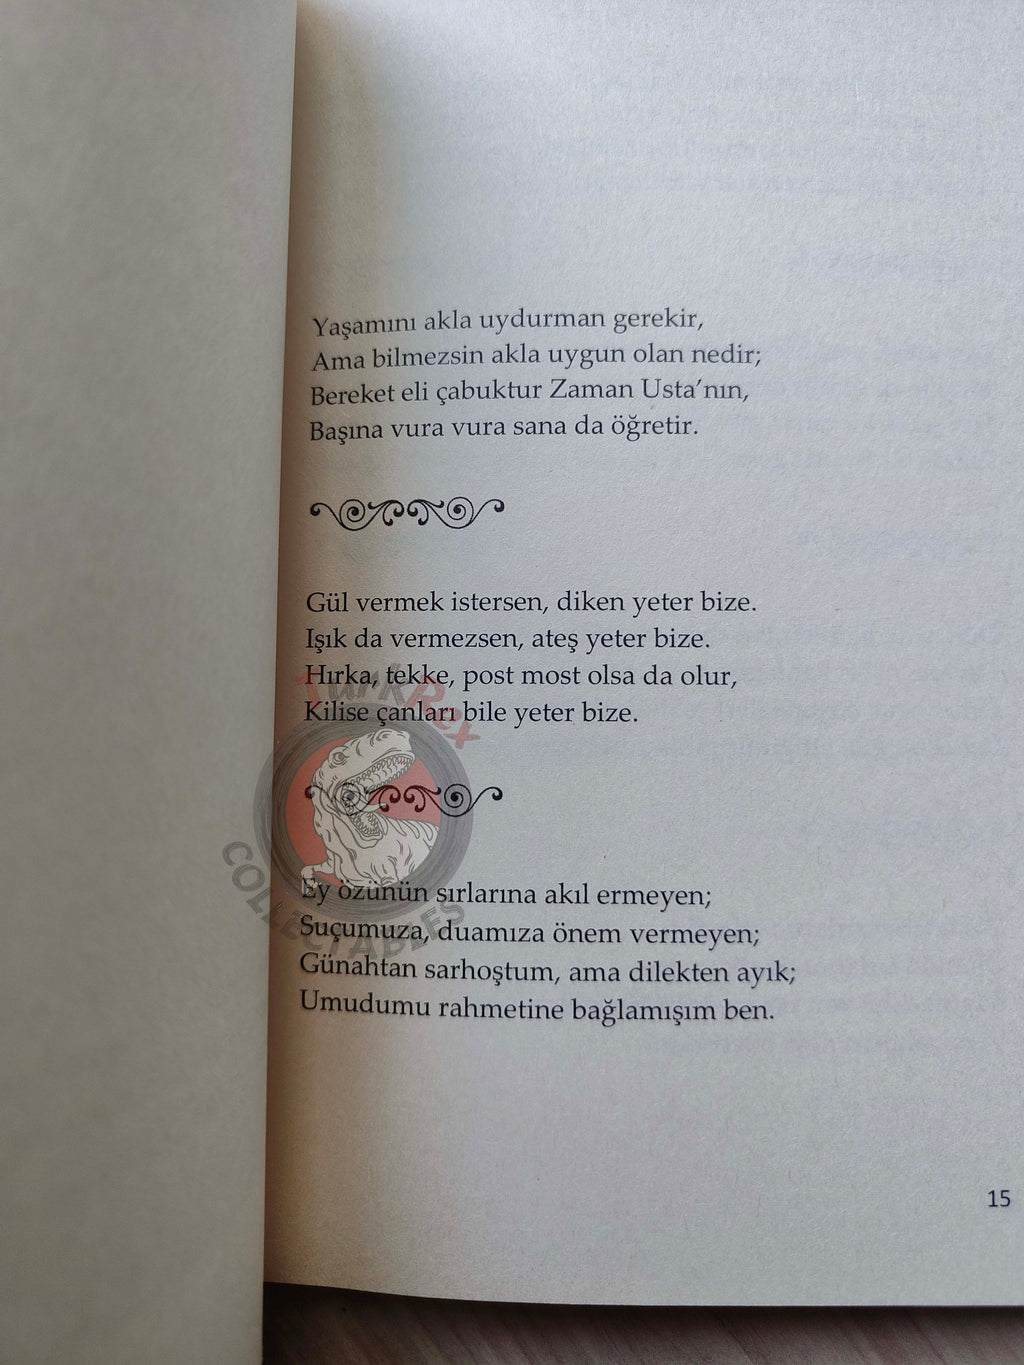 Yaşamını akla uydurman gerekir,
Ama bilmezsin akla uygun olan nedir;
Bereket eli çabuktur Zaman Usta'nın,
Başına vura vura sana da öğretir.
Gül vermek istersen, diken yeter bize.
Işık da vermezsen, ateş yeter bize.
Hırka, tekke, post most olsa da olur,
Kilise çanları bile yeter bize.
TurkRex
COLLECTABLES
Ey özünün sırlarına akıl ermeyen;
Suçumuza, duamıza önem vermeyen;
Günahtan sarhoştum, ama dilekten ayık;
Umudumu rahmetine bağlamışım ben.
15